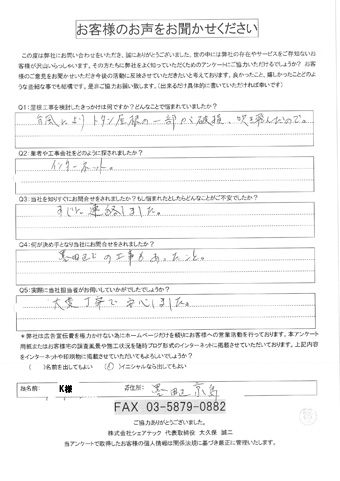 お客様のお声をお聞かせください
この度は弊社にお問い合わせをいただき、誠にありがとうございました。世の中には弊社の存在やサービスをご存知ないお
客様が沢山いらっしゃいます。その方たちに弊社をよく知っていただくためのアンケートにご協力いただけるでしょうか？ お客
様のご意見をお聞かせいただき今後の活動に反映させていただきたいと考えております。良かったこと、嬉しかったことどのよ
うな些細な事でも結構です。是非ご協力お願い致します。(出来るだけ具体的に書いていただければ幸いです)
Q1:屋根工事を検討したきっかけは何ですか？どんなことで悩まれていましたか？
台風によりトタン屋根の一部が破損、吹き飛んだので。
Q2:業者や工事会社をどのように探されましたか？
インターネット。
Q3:当社を知りすぐにお問合せをされましたか？もし悩まれたとしたらどんなことがご不安でしたか？
すぐに連絡しました。
Q4:何が決め手となり当社にお問合せをされましたか？
墨田区での工事もあったこと。
Q5:実際に当社担当者がお伺いしていかがでしたでしょうか？
大変丁寧で安心しました。
＊弊社は広告宣伝費を極力かけない為にホームページだけを頼りにお客様への営業活動を行っております。本アンケート
用紙またはお客様宅の調査風景や施工状況を随時ブログ形式でインターネットに掲載させていただいております。上記内容
をインターネットや印刷物に掲載させていただいてもよろしいでしょうか？
( )名前を出してもよい ( )イニシャルなら出してもよい
お名前: K様 ご住所: 墨田区京島
FAX 03-5879-0882
ご協力ありがとうございました。
株式会社シェアテック 代表取締役 大久保 誠二
当アンケートで取得したお客様の個人情報は関係法規に基づき厳正に管理いたします。